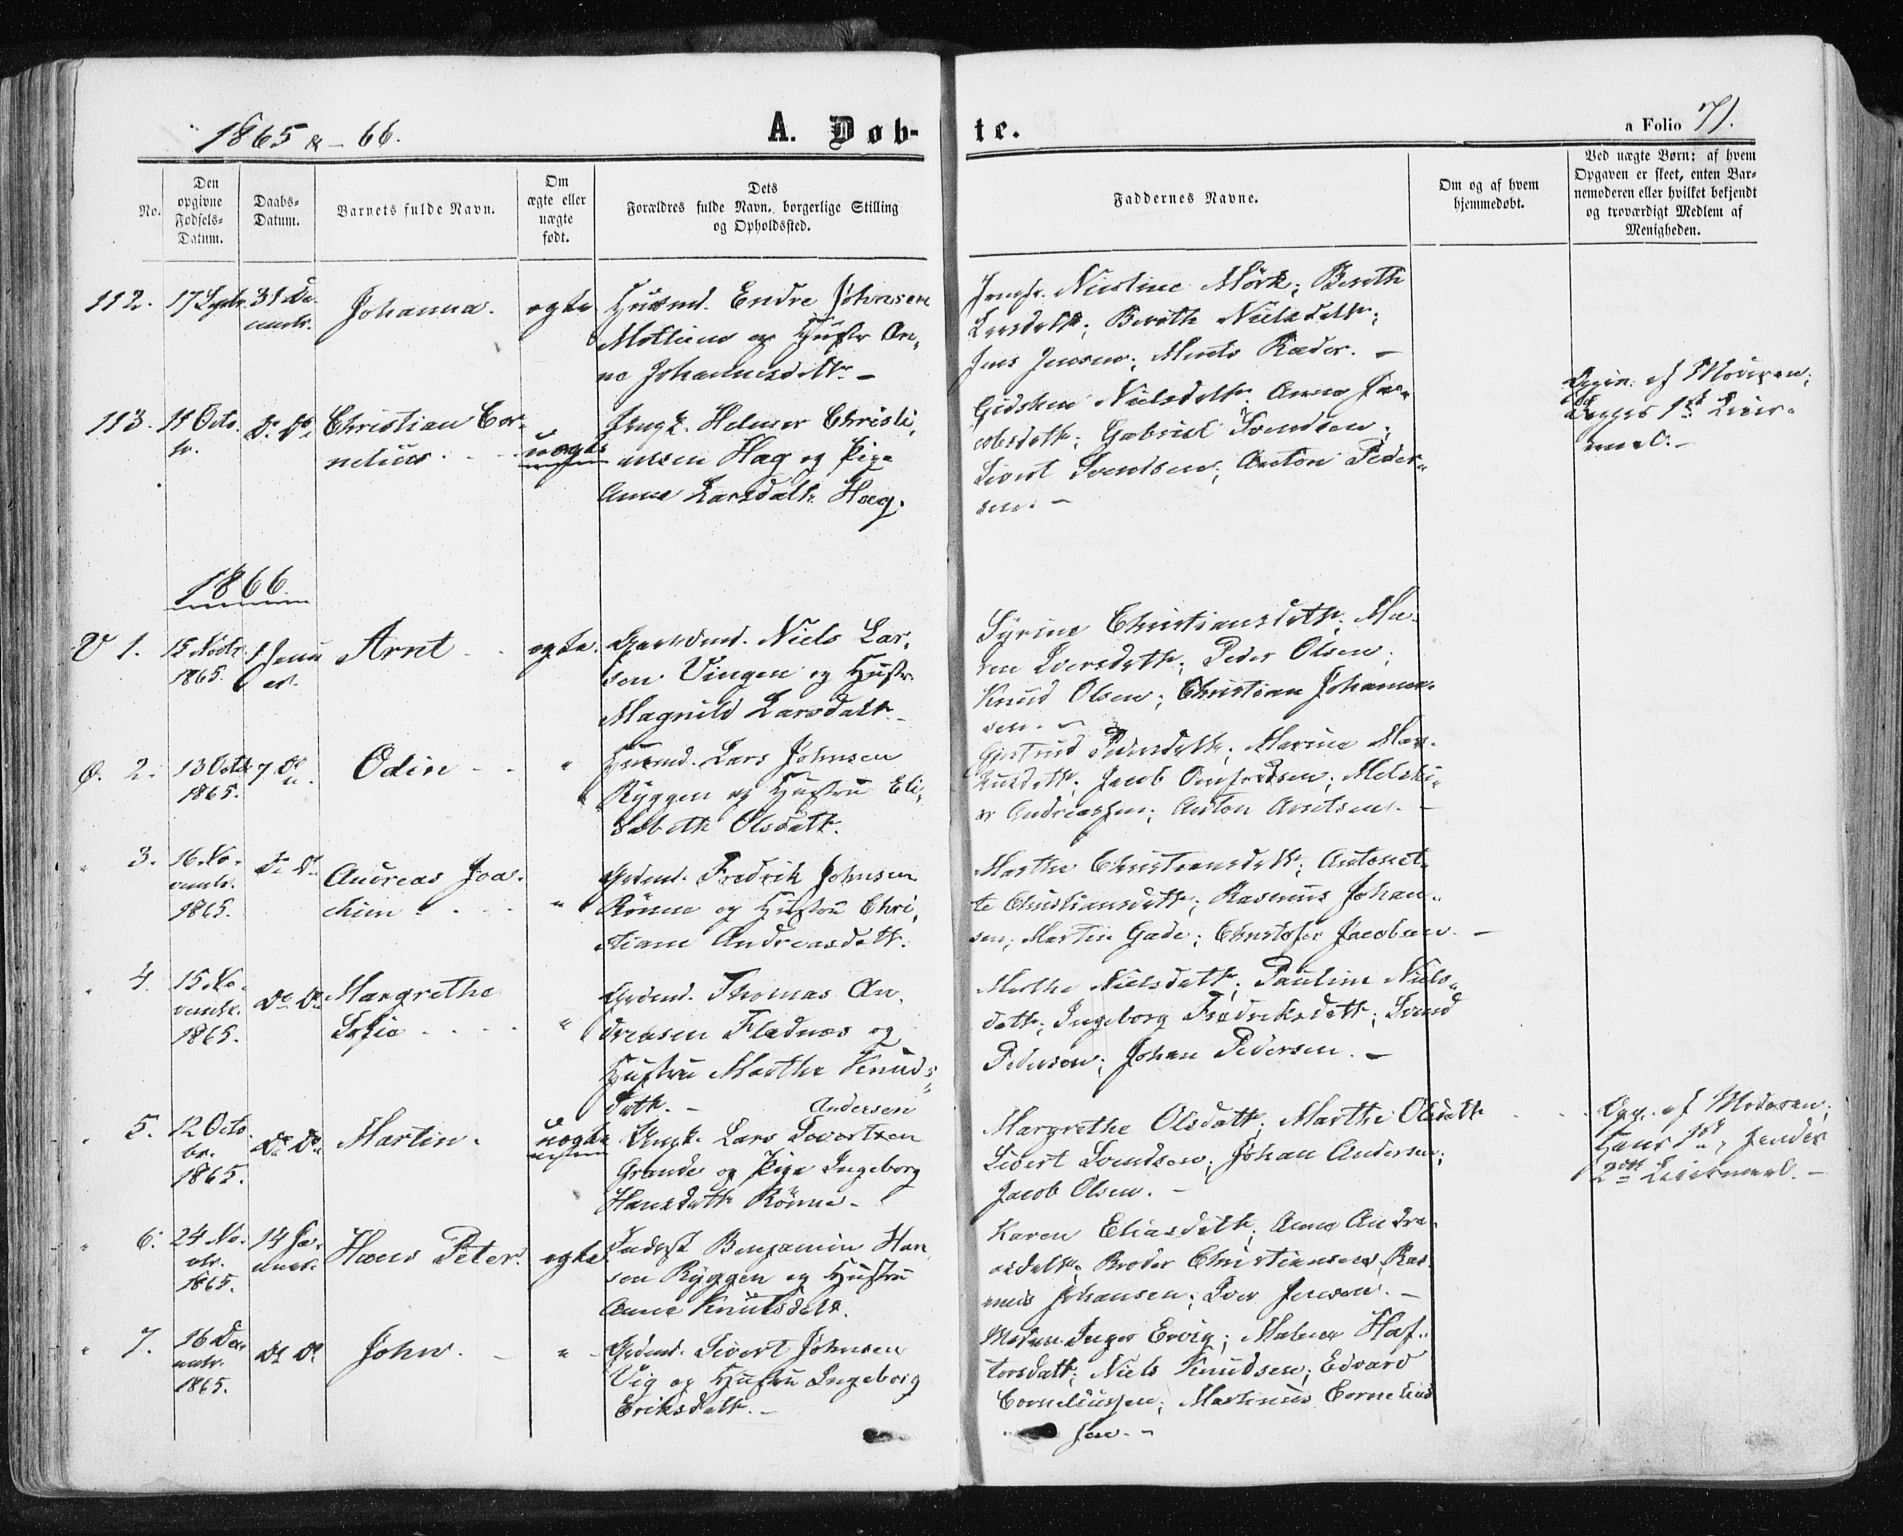 1865 & - 66.
A. Døb-
te.
a Folio 71.
No.
Den opgivne Fødsels-Datum.
Daabs-Datum.
Barnets fulde Navn.
Om ægte eller uægte født.
Dets
Forældres fulde Navn, borgerlige Stilling
og Opholdssted.
Faddernes Navne.
Om og af hvem
hjemmedøbt.
Ved uægte Børn; af hvem
Opgaven er skeet, enten Bar-
nemoderen eller hvilket bekjendt
og troværdigt Medlem af
Menigheden.
112. 17 Septbr. 31 De- Johanna. ægte Husmd. Endre Johnsen
cembr.
og Hustr An-
ne Johannesdatt. -
Jomfr. Mørk; Berith
Larsdatt; Berith Nielsdatt;
Jens Jensen; Ræder. -
113. 11 Octo- Do Do Christian Cor-
br. nelius uægte
Ungk. Helmer Christi-
ansen Hag og Pige
Anne Larsdatt. Hag.
Gidsken Nielsdatt; Anne Ja-
cobsdatt; Gabriel Svendsen;
Sivert Svendsen; Anton Peder-
sen. -
af Moderen;
Begges 1st Leier-
maal. -
1866
V 1. 1865. 1 Janu- Arnt ægte. Gaardmd. Niels Lar-
ar.
sen Vingen og Hustr
Magnild Larsdatt. -
Syrine Christiansdatt; Ma-
ren Iversdatt; Peder Olsen;
Knud Olsen; Christian Johannes-
sen. -
Ø. 2. 13 Octb. 7 Do Odin - - "
1865.
Husmd. Lars Johnsen
Ryggen og Hustru Eli-
sabeth Olsdatt.
Gjertrud Pedersdatt; Marine Mar-
kusdatt; Jacob
Andreassen; Anton Arntsen. -
" 3. 16 No- Do Do Andreas Joa-
vembr. chim
1865. "
Grdmd. Fredrik Johnsen
Rønne og Hustru Chri-
stiane Andreasdatt.
Marthe Christiansdatt; Antonet-
te Christiansdatt; Rasmus Johan-
sen; Martin Gade; Christofer Jacobsen. -
" 4. 15 No- Do Do Margrethe
vembr. Sofie
1865. "
Grdmd. Thomas An-
dreasen Fladnes og
Hustru Marthe Knuds-
datt. -
Marthe Nielsdatt; Pauline Niels-
datt; Ingeborg Fredriksdatt; Svend
Pedersen; Johan Pedersen. -
" 5. 12 Octo- Do Do Martin. uægte
br.
1865.
Andersen
Ungk. Lars Sivertsen
Grande og Pige Ingeborg
Hansdatt Rønne -
Margrethe Olsdatt; Marthe Olsdatt
Sivert Svendsen; Johan Andersen;
Jacob Olsen. -
Opg. af Moderen;
Hans 1st, hendes
2det Leiermaal. -
" 6. 24 No- 14 Ja- Hans Peter. ægte.
vbr. nuar.
1865.
Inderst Benjamin Han-
sen Ryggen og Hustru
Anne Knutsdatt.
Karen Eliasdatt; Anne Andre-
asdatt; Broder Christiansen; Ras-
mus Johansen; Iver Jensen. -
" 7. 16 De- Do Do John. - "
cembr.
1865.
Grdmd. Sivert Johnsen
Vig og Hustru Ingeborg
Eriksdatt. -
Madam Inger Ervig; Malene Haf-
torsdatt; Niels Knudsen; Edvard
Corneliussen; Martinus Cornelius-
sen. -